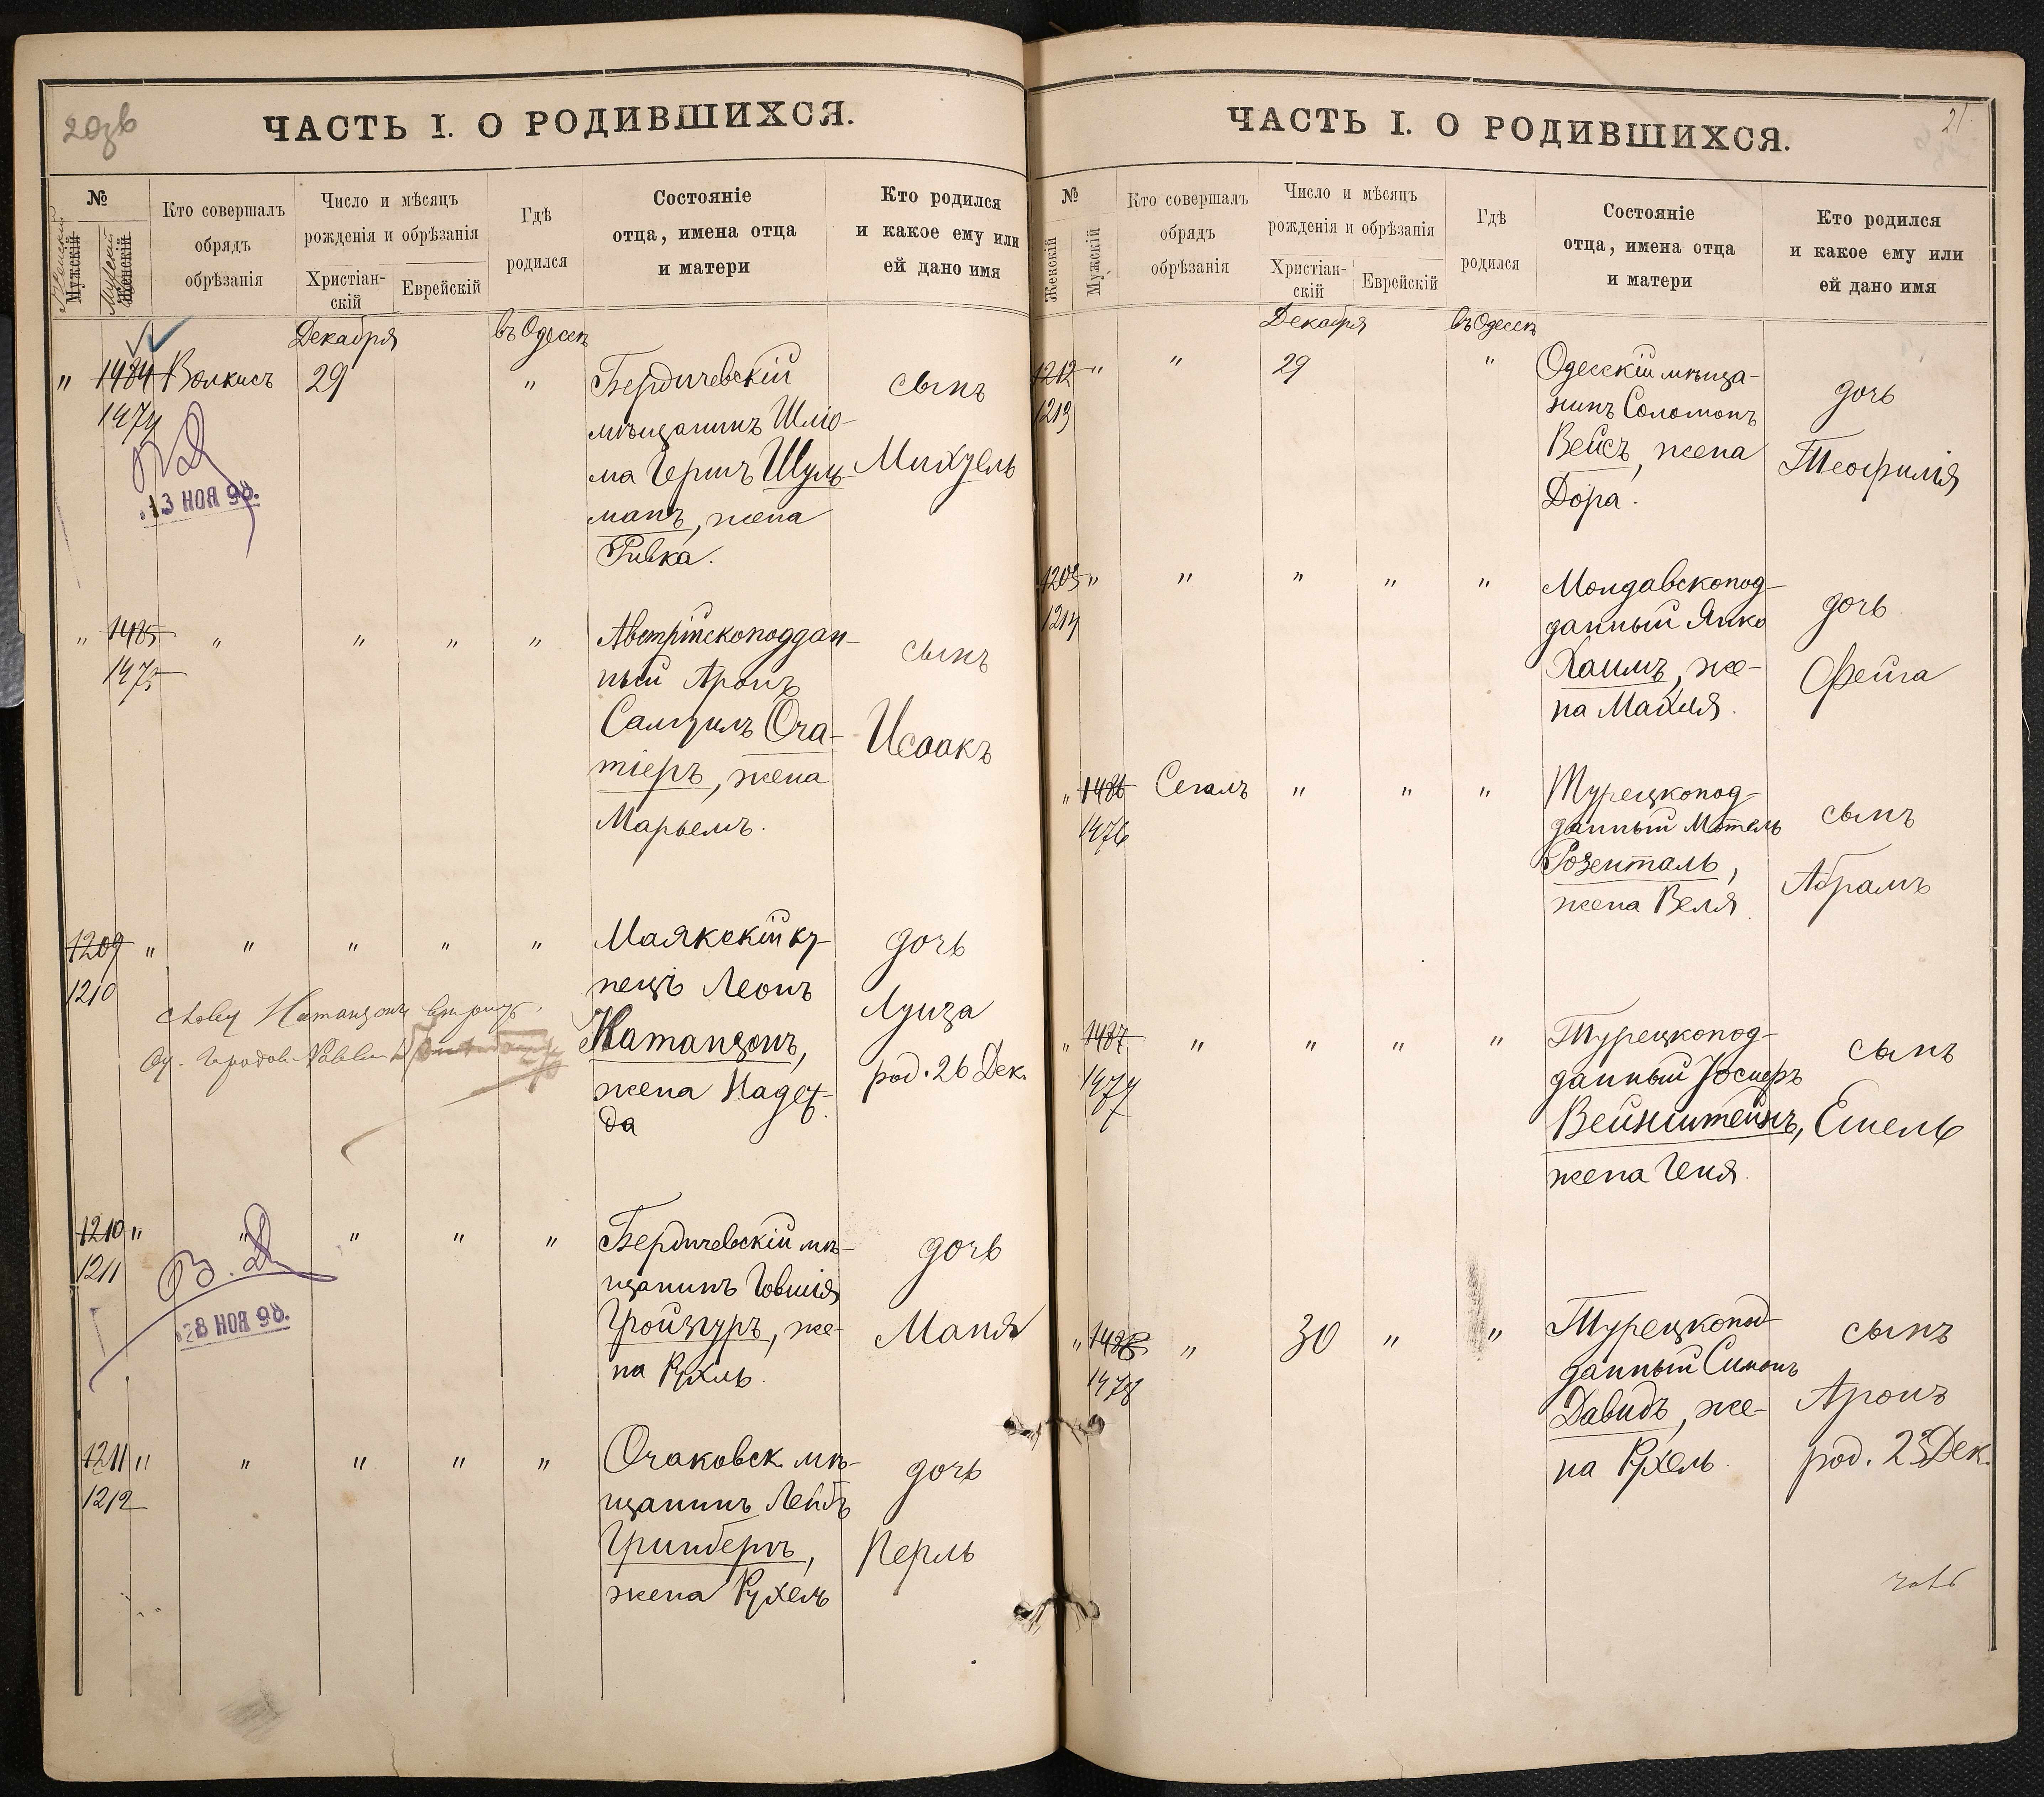 20зв
ЧАСТЬ I. О РОДИВШИХСЯ.
№
Женскій
Мужскій
Мужскій
Женскій
Кто совершалъ
обрядъ
обрѣзанія
Число и мѣсяцъ
рожденія и обрѣзанія
Христіан-
скій
Еврейскій
Гдѣ
родился
Состояніе
отца, имена отца
и матери
Кто родился
и какое ему или
ей дано имя
Декабря
въ Одессѣ
" 1484 Волкисъ 29 "
1474
13 НОЯ 98.
Бердичевскій
мѣщанинъ Шліо-
ма Гершъ Шуль-
манъ, жена
Ривка.
сынъ
Михуель
" 1485 " " " "
1475
Австрійскоподдан-
ный Аронъ
Самуилъ Оча-
тіеръ, жена
Марьемъ.
сынъ
Исаакъ
1209 " " " " "
1210
Маякскій ку-
пецъ Леонъ
Натанзонъ,
жена Надеж-
да
дочь
Луиза
род. 26 Дек.
1210 " " " " "
1211
В. Д
28 НОЯ 98.
Бердичевскій мѣ-
щанинъ Говшія
Гройзгуръ, же-
на Рухль.
дочь
Маня
1211 " " " " "
1212
Очаковск. мѣ-
щанинъ Лейбъ
Гринбергъ,
жена Рухель
дочь
Перль
21
ЧАСТЬ I. О РОДИВШИХСЯ.
№
Женскій
Мужскій
Кто совершалъ
обрядъ
обрѣзанія
Число и мѣсяцъ
рожденія и обрѣзанія
Христіан-
скій
Еврейскій
Гдѣ
родился
Состояніе
отца, имена отца
и матери
Кто родился
и какое ему или
ей дано имя
Декабря
въ Одессѣ
1212 " " 29 "
1213
Одесскій мѣща-
нинъ Соломонъ
Вейсъ, жена
Дора.
дочь
Теофилія
1203 " " " " "
1214
Молдавскопод-
данный Янко
Хаимъ, же-
на Махля.
дочь
Фейга
" 1486 Сегалъ " " "
1476
Турецкопод-
данный Мотель
Розенталь,
жена Веля.
сынъ
Абрамъ
" 1487 " " " "
1477
Турецкопод-
данный Іосифъ
Вейнштейнъ,
жена Геня.
сынъ
Ешель
" 1488 " 30 " "
1478
Турецкопод-
данный Симонъ
Давидъ, же-
на Рухель.
сынъ
Аронъ
род. 23 Дек.